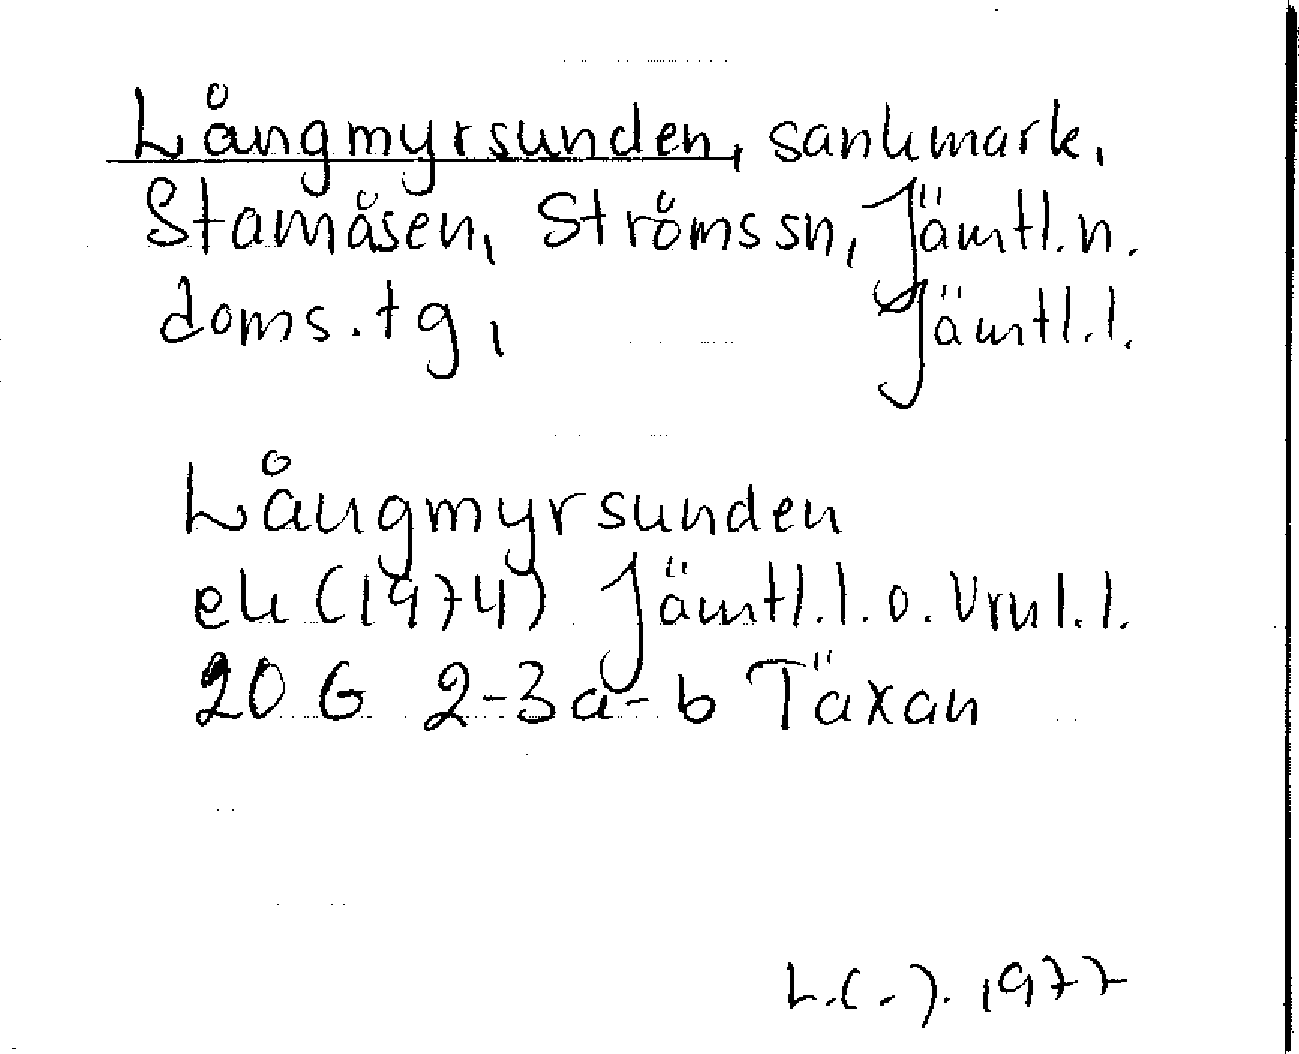 Långmyrsunden, sankmark,
Stamåsen, Ströms sn, Jämtl. n.
doms. tg, Jämtl. l.
Långmyrsunden
ek (1974) Jämtl. l. o. Vrnl. l.
20 G 2-3 a-b Täxan
L. (-). 1977